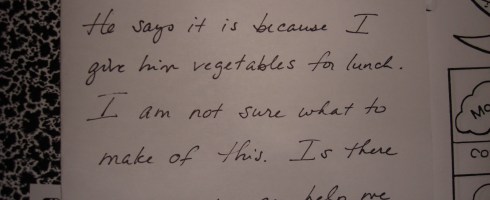 He says it is because I
give him vegetables for lunch.
I am not sure what to
make of this. Is there
help me
Mo
CO